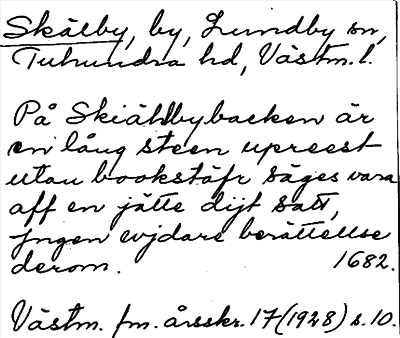 Skälby, by, Lundby sn,
Tuhundra hd, Västm. l.
På Skiählbybacken är
en lång steen upreest
utan bookstäfr säges vara
aff en jätte dijt satt,
Jngen wjdare berättellse
derom. 1682.
Västm. fm. årsskr. 17 (1928) s. 10.